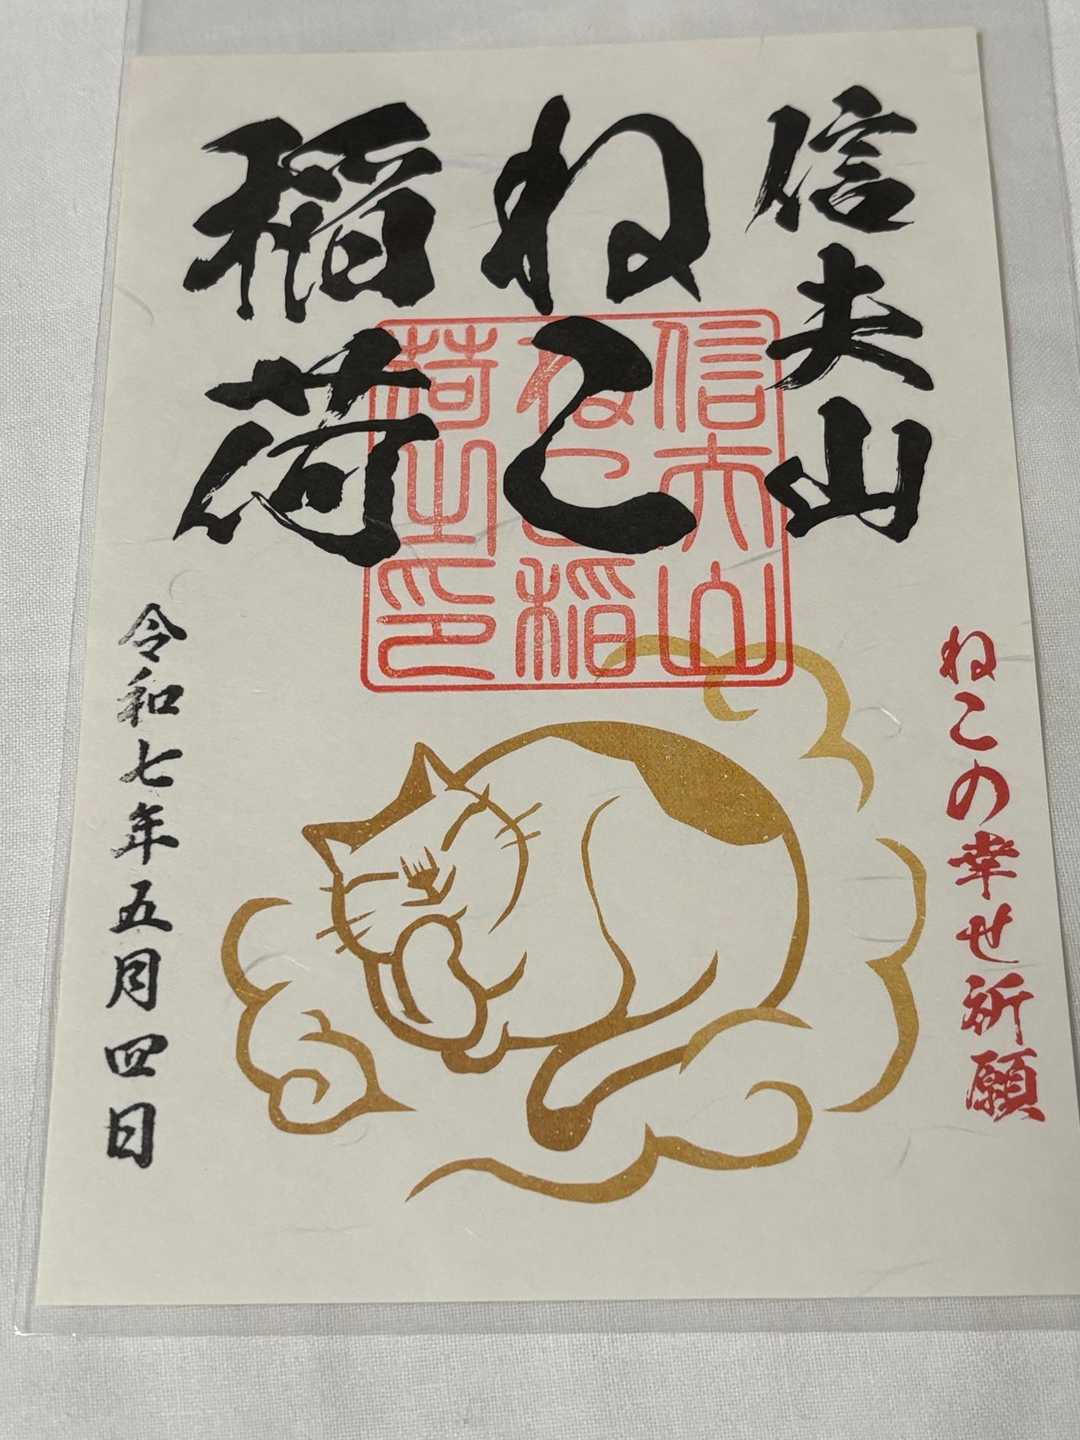 信夫山
ねこ
稲荷
信夫山
ねこ稲
荷之印
ねこの幸せ祈願
令和七年五月四日